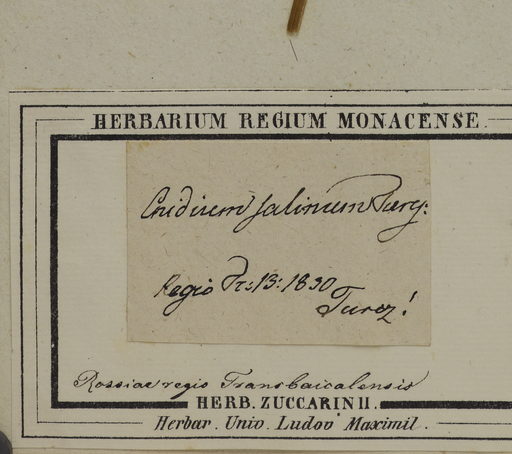 HERBARIUM REGIUM MONACENSE.
Cnidium salinum Turcz:
Regio Tr: B: 1830
Turcz!
Rossiae regio Transbaicalensis
HERB. ZUCCARINII.
Herbar. Univ. Ludov Maximil.